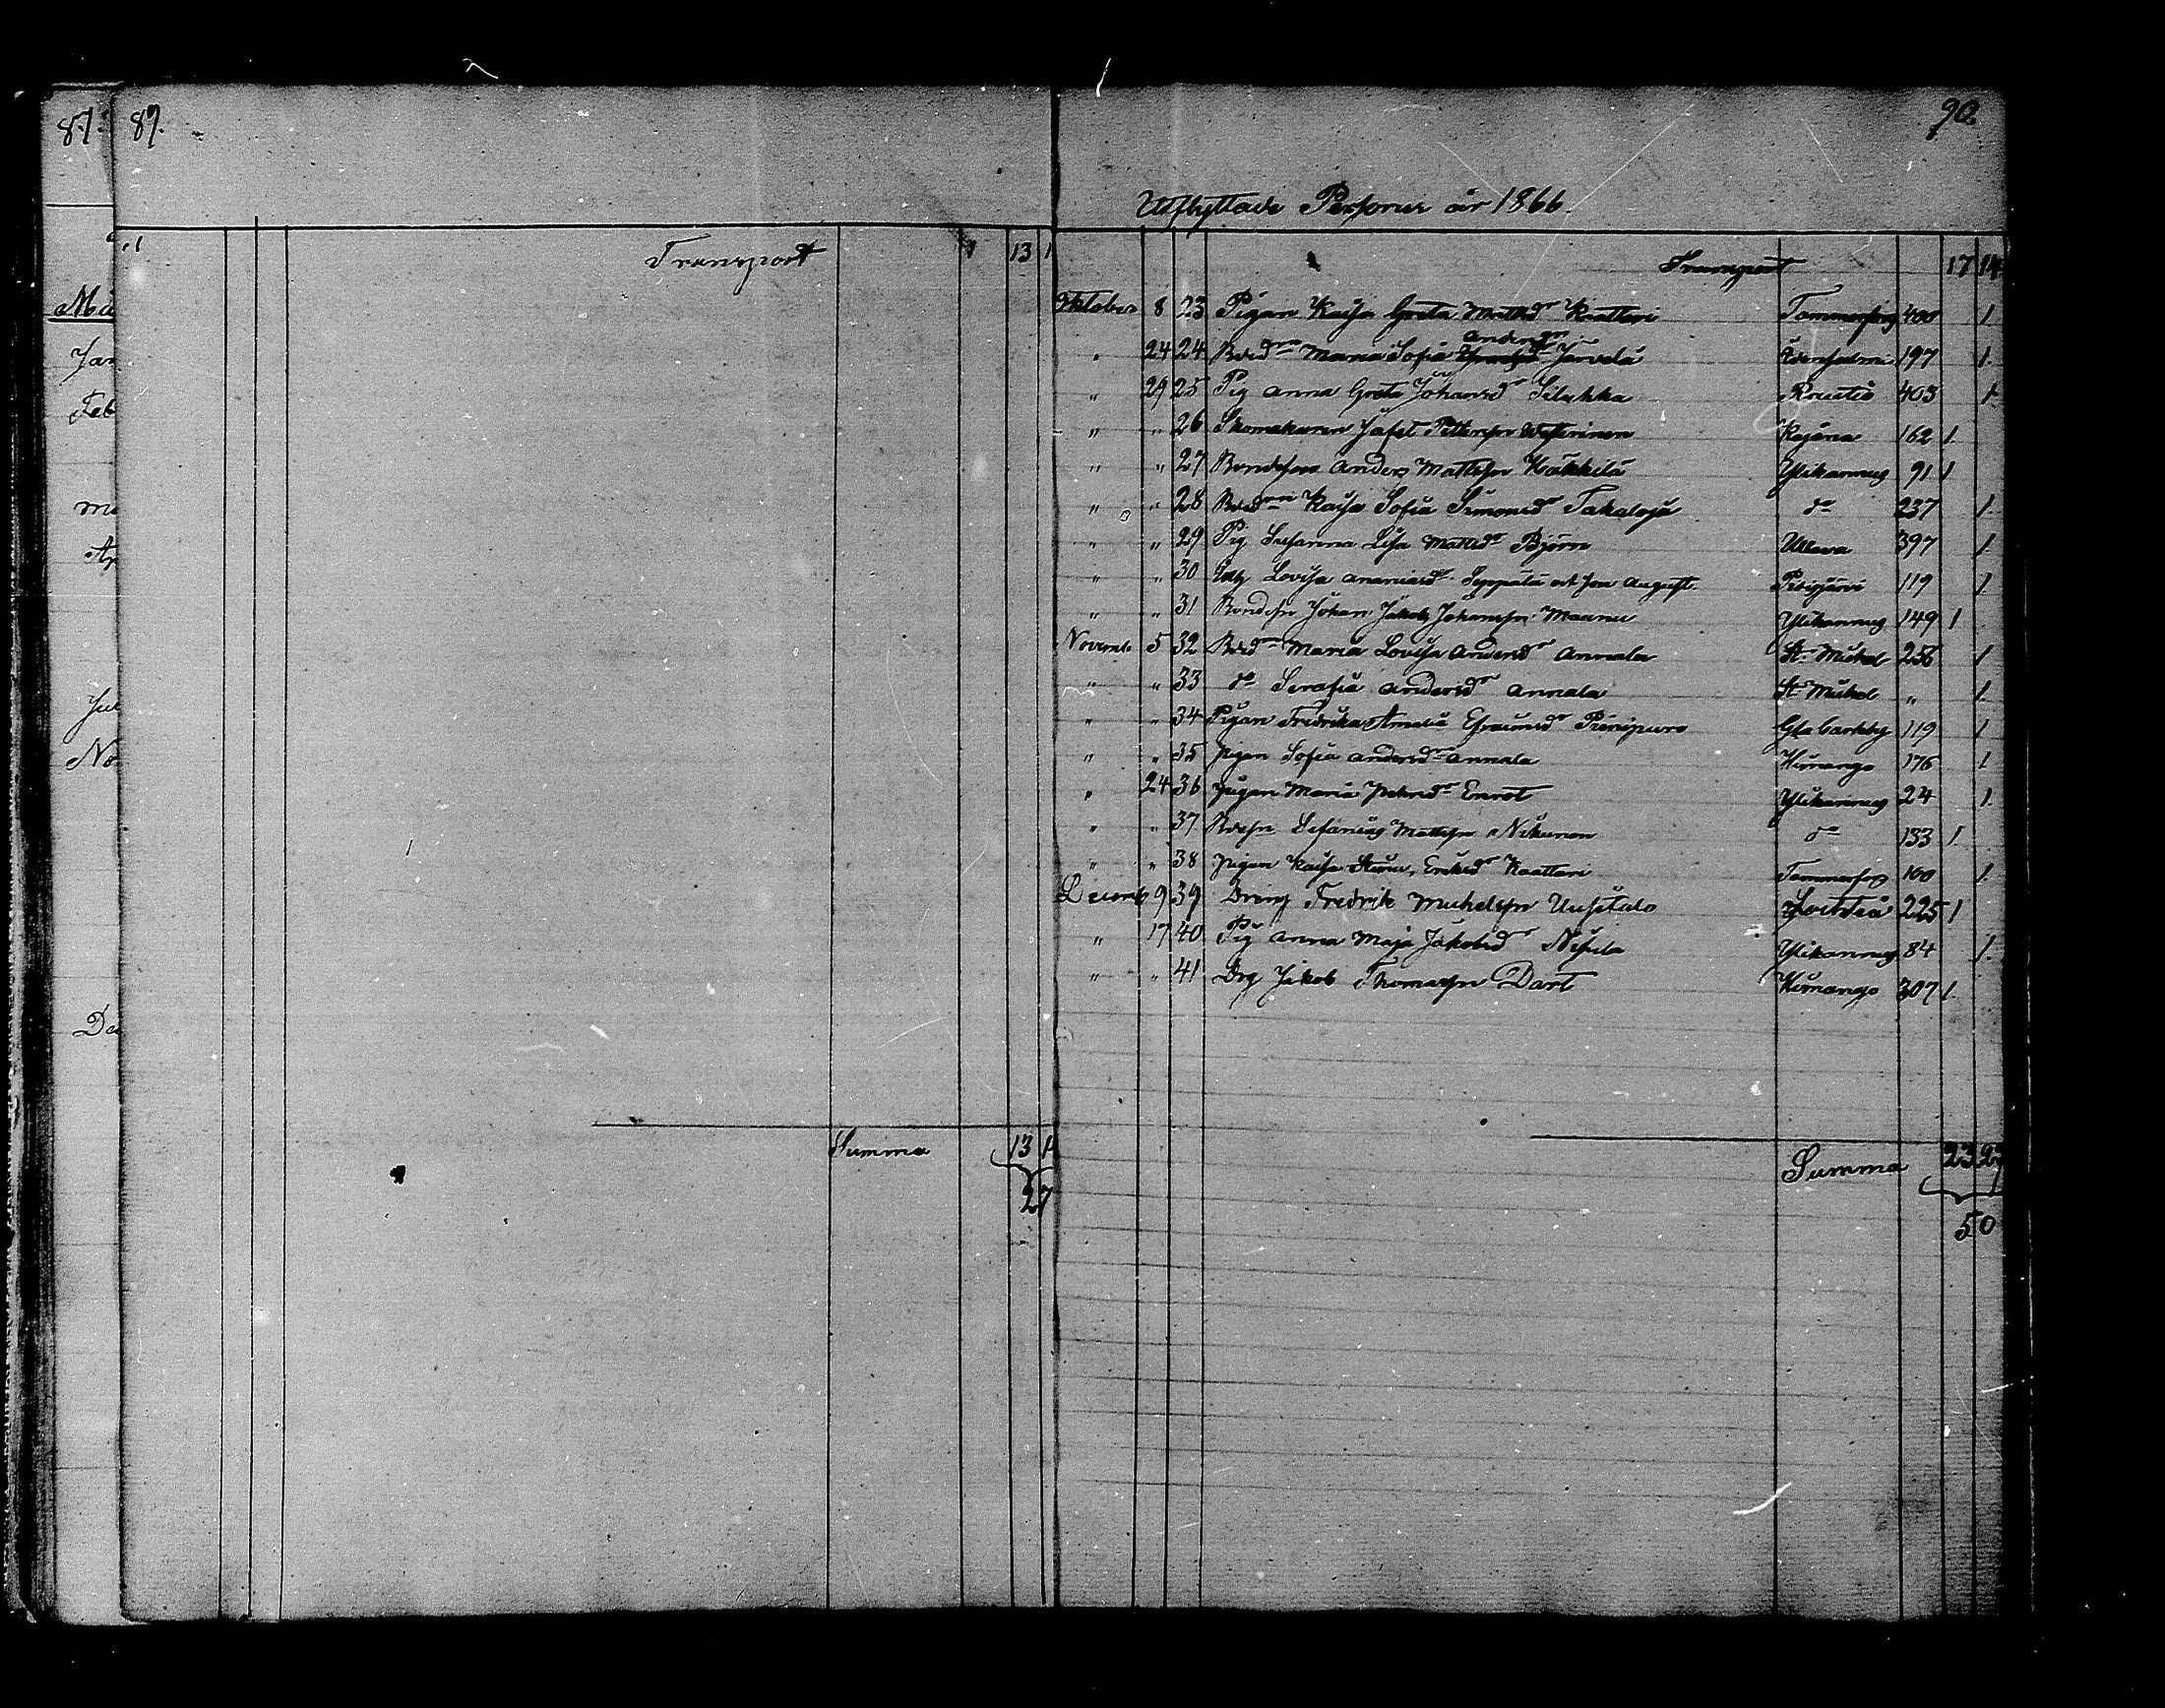 87.
89.
90.
Utflyttade Personer år 1866.
Transport 13 1
Transport 17 14
Oktober 8 23 Pigan Kajsa Greta Mattsdr Kaattari Tammerfors 400 1.
" 24 24 Bdedrn Maria Sofia Andersdr Järvelä Idensalmi 197 1.
" 29 25 Pig Anna Greta Johansdr Silukka Rautio 403 1.
" " 26 Skomakaren Jafet Pettersson Westerinen Kajana 162 1.
" " 27 Bondeson Anders Mattsson Häkkilä Ylikannus 91 1
" " 28 Bdedrn Kajsa Sofia Simonsdr Takaloja do 237 1.
" " 29 Pig Susanna Lisa Mattsdr Björn Ullava 397 1.
" " 30 Lovisa Ananiasdr Seppälä och son August. Pihtipudas 119 1.
" " 31 Bondesn Johan Jakob Johansson Maunu Ylikannus 149 1
Novemb. 5 32 Bdedrn Maria Lovisa Andersdr Annala St. Mickel 256 1
" " 33 do Serafia Andersdr Annala St. Mickel " 1.
" " 34 Pigan Fredrika Amalia Efraimsdr Pirinpuro Gla Carleby 119 1
" " 35 Pigan Sofia Andersdr Annala Himango 176 1.
" 24 36 Pigan Maria Petersdr Enrot Ylikannus 24 1.
" " 37 Bdesn Sefanias Mattsson Nikunen do 133 1.
" " 38 Pigan Kajsa Stina Eriksdr Kaattari Tammerfors 100 1.
Decemb 9 39 Dreng Fredrik Michelsson Uusitalo Lochteå 225 1
" 17 40 Pig Anna Maja Jakobsdr Nisula Ylikannus 84 1.
" " 41 Drg Jakob Thomasson Dart Himango 307 1.
Summa 13 1
27
Summa 23 27
50